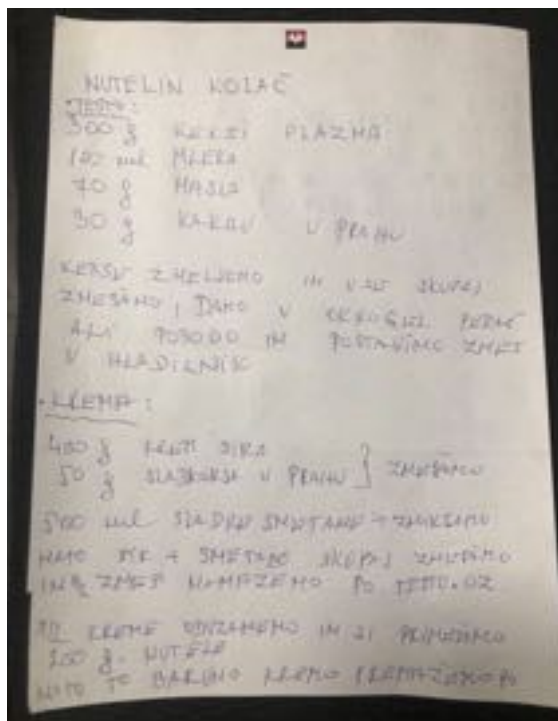 NUTELIN KOLAČ
TESTO:
300 g KEKSI PLAZMA
100 ml MLEKA
70 g MASLA
30 g KAKAV V PRAHU
KEKSE ZMELJEMO IN VSE SKUPAJ
ZMEŠAMO, DAMO V OKROGEL PEKAČ
ALI POSODO IN POSTAVIMO ZMES
V HLADILNIK
KREMA:
400 g SIRA
50 g SLADKORJA V PRAHU } ZMEŠAMO
500 ml SLADKE SMETANE
NATO SIR + SMETANO SKUPAJ ZMEŠAMO
IN ZMES NAMAŽEMO PO TESTU. OZ
KREME ODVZAMEMO IN JI PRIMEŠAMO
200 g NUTELE
NATO TO KREMO PREMAŽEMO PO